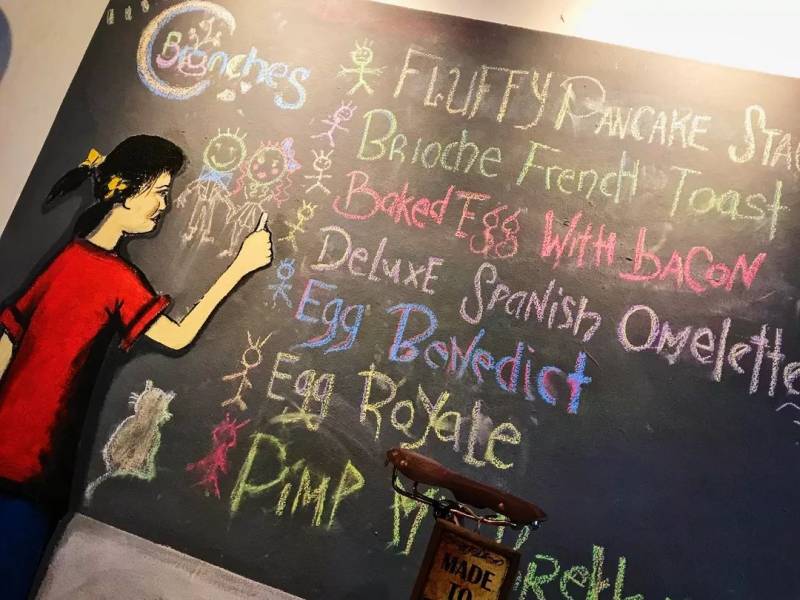 Branches
Fluffy Pancake
Brioche French Toast
Baked Egg With bacon
Deluxe Spanish Omelette
Egg Benedict
Egg Royale
Pimp
MADE
TO